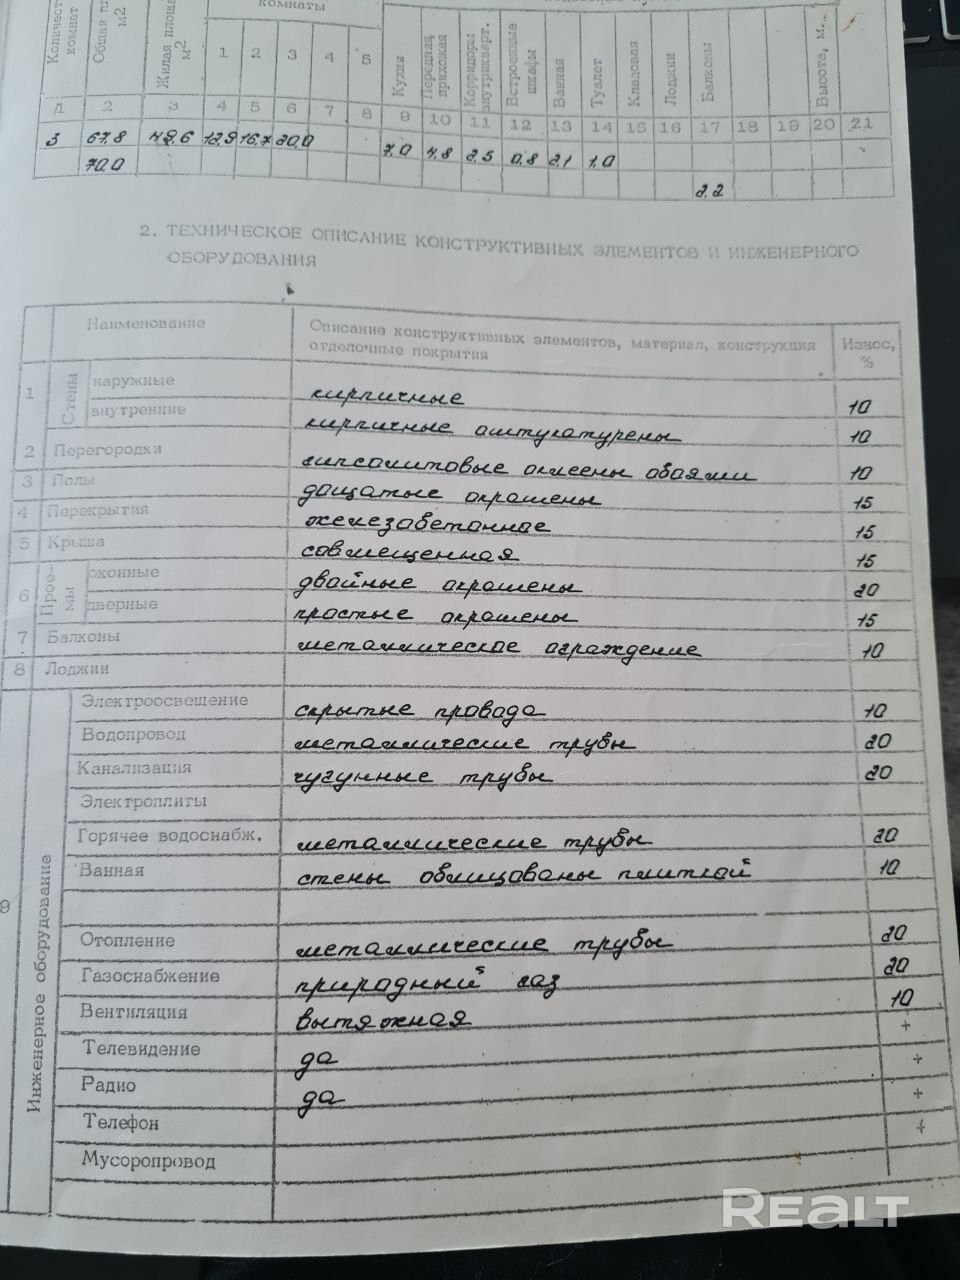 комнаты
Количест
комнат
Общая пл
м2
Жилая площа
м2
1 2 3 4 5
Кухня
Передняя,
прихожая
Корридоры
внутрикварт.
Встроенные
шкафы
Ванная
Туалет
Кладовая
Лоджии
Балконы
Высота, м.
2 3 4 5 6 7 8 9 10 11 12 13 14 15 16 17 18 19 20 21
3 67,8 49,6 12,9 16,7 20,0 7,0 4,8 2,5 0,8 2,1 1,0
70,0 2,2
2. ТЕХНИЧЕСКОЕ ОПИСАНИЕ КОНСТРУКТИВНЫХ ЭЛЕМЕНТОВ И ИНЖЕНЕРНОГО
ОБОРУДОВАНИЯ
Наименование Описание конструктивных элементов, материал, конструкция Износ,
отделочные покрытия %
1 Стены наружные кирпичные 10
внутренние кирпичные оштукатурены 10
2 Перегородки гипсолитовые оклеены обоями 10
3 Полы дощатые окрашены 15
4 Перекрытия железобетонное 15
5 Крыша совмещенная 15
6 Прое-
мы оконные двойные окрашены 20
дверные простые окрашены 15
7 Балконы металлическое ограждение 10
8 Лоджии
9 Инженерное оборудование
Электроосвещение скрытые провода 10
Водопровод металлические трубы 20
Канализация чугунные трубы 20
Электроплиты
Горячее водоснабж. металлические трубы 20
Ванная стены облицованы плиткой 10
Отопление металлические трубы 20
Газоснабжение природный газ 20
Вентиляция вытяжная 10
Телевидение да +
Радио да +
Телефон +
Мусоропровод +
Realt